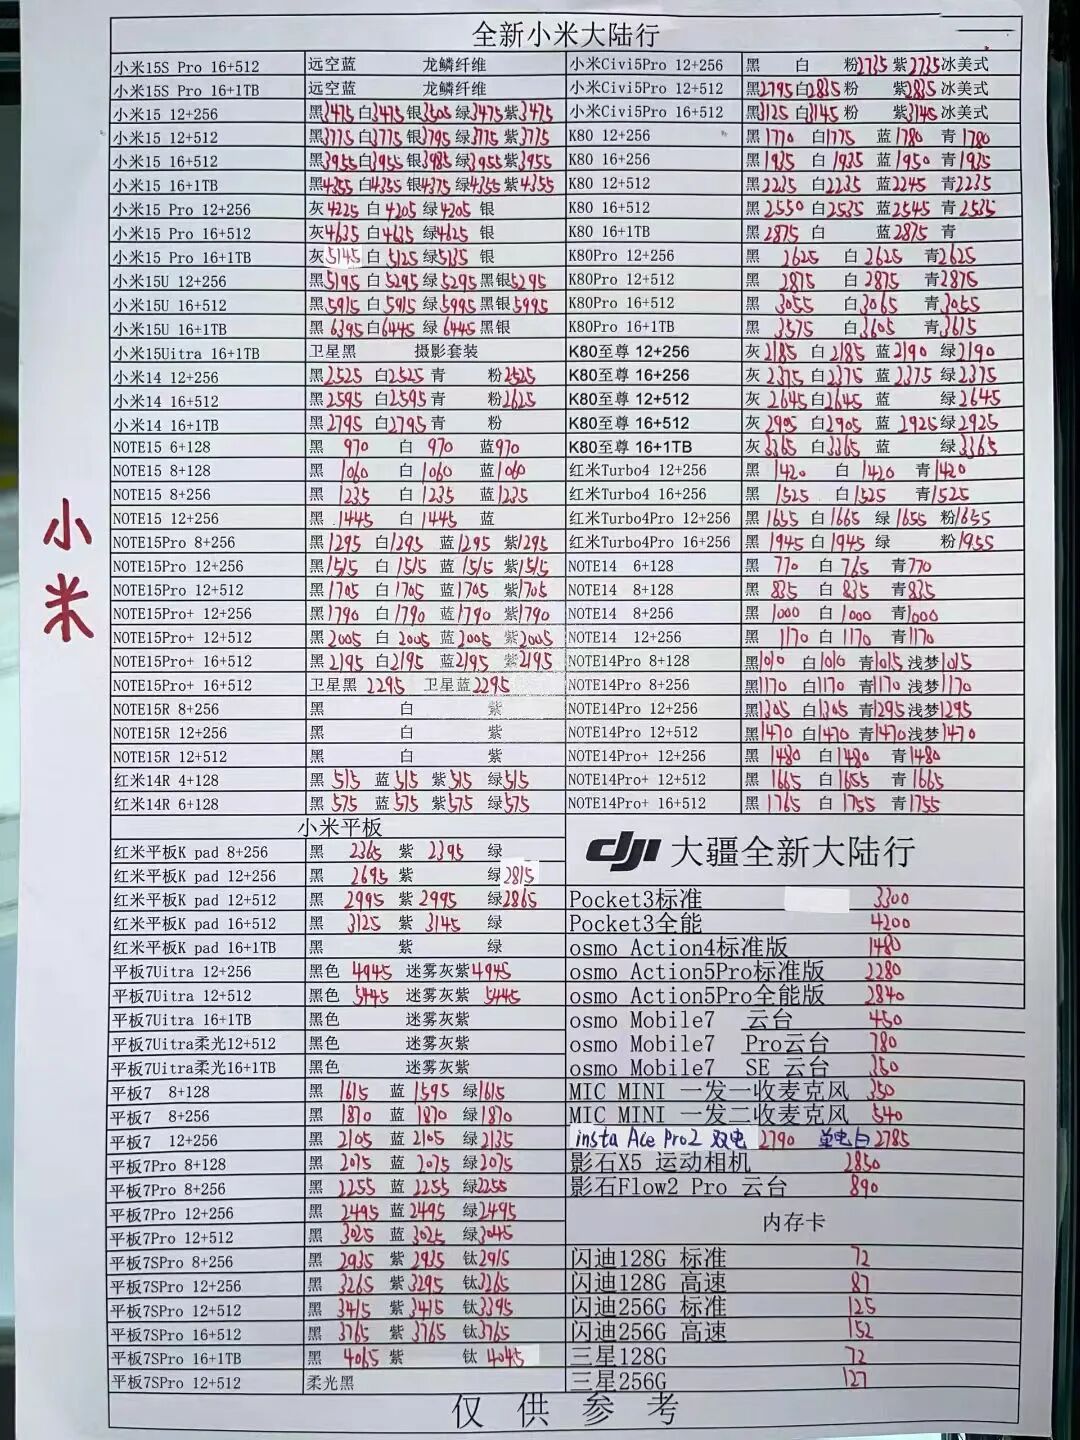 全新小米大陆行
小米15S Pro 16+512 远空蓝 龙鳞纤维
小米15S Pro 16+1TB 远空蓝 龙鳞纤维
小米15 12+256 黑3475 白3475 银3505 绿3475 紫3475
小米15 12+512 黑3775 白3775 银3795 绿3775 紫3775
小米15 16+512 黑3955 白3955 银3985 绿3955 紫3955
小米15 16+1TB 黑4355 白4355 银4375 绿4355 紫4355
小米15 Pro 12+256 灰4225 白4205 绿4205 银
小米15 Pro 16+512 灰4635 白4635 绿4625 银
小米15 Pro 16+1TB 灰5145 白5125 绿5135 银
小米15U 12+256 黑5195 白5295 绿5295 黑银5295
小米15U 16+512 黑5915 白5915 绿5995 黑银5995
小米15U 16+1TB 黑6395 白6445 绿6445 黑银
小米15Uitra 16+1TB 卫星黑 摄影套装
小米14 12+256 黑2525 白2525 青 粉2525
小米14 16+512 黑2595 白2595 青 粉2625
小米14 16+1TB 黑2795 白2795 青 粉
NOTE15 6+128 黑970 白970 蓝970
NOTE15 8+128 黑1060 白1060 蓝1060
NOTE15 8+256 黑1235 白1235 蓝1235
NOTE15 12+256 黑1445 白1445 蓝
NOTE15Pro 8+256 黑1295 白1295 蓝1295 紫1295
NOTE15Pro 12+256 黑1515 白1515 蓝1515 紫1515
NOTE15Pro 12+512 黑1705 白1705 蓝1705 紫1705
NOTE15Pro+ 12+256 黑1790 白1790 蓝1790 紫1790
NOTE15Pro+ 12+512 黑2005 白2005 蓝2005 紫2005
NOTE15Pro+ 16+512 黑2195 白2195 蓝2195 紫2195
NOTE15Pro+ 16+512 卫星黑2295 卫星蓝2295
NOTE15R 8+256 黑 白 紫
NOTE15R 12+256 黑 白 紫
NOTE15R 12+512 黑 白 紫
红米14R 4+128 黑515 蓝515 紫515 绿515
红米14R 6+128 黑575 蓝575 紫575 绿575
小米Civi5Pro 12+256 黑 白 粉2735 紫2735 冰美式
小米Civi5Pro 12+512 黑2795 白2835 粉 紫2835 冰美式
小米Civi5Pro 16+512 黑3125 白3145 粉 紫3145 冰美式
K80 12+256 黑1770 白1775 蓝1780 青1780
K80 16+256 黑1935 白1935 蓝1950 青1935
K80 12+512 黑2235 白2235 蓝2245 青2235
K80 16+512 黑2550 白2535 蓝2545 青2535
K80 16+1TB 黑2875 白 蓝2875 青
K80Pro 12+256 黑2625 白2625 青2625
K80Pro 12+512 黑2875 白2875 青2875
K80Pro 16+512 黑3055 白3065 青3055
K80Pro 16+1TB 黑3575 白3605 青3615
K80至尊 12+256 灰2185 白2185 蓝2190 绿2190
K80至尊 16+256 灰2375 白2375 蓝2375 绿2375
K80至尊 12+512 灰2645 白2645 蓝 绿2645
K80至尊 16+512 灰2905 白2905 蓝2925 绿2925
K80至尊 16+1TB 灰3365 白3365 蓝 绿3365
红米Turbo4 12+256 黑1420 白1420 青1420
红米Turbo4 16+256 黑1525 白1525 青1525
红米Turbo4Pro 12+256 黑1655 白1665 绿1655 粉1655
红米Turbo4Pro 16+256 黑1945 白1945 绿 粉1955
NOTE14 6+128 黑770 白765 青770
NOTE14 8+128 黑835 白835 青835
NOTE14 8+256 黑1000 白1000 青1000
NOTE14 12+256 黑1170 白1170 青1170
NOTE14Pro 8+128 黑1010 白1010 青1015 浅梦1015
NOTE14Pro 8+256 黑1170 白1170 青1170 浅梦1170
NOTE14Pro 12+256 黑1305 白1305 青1295 浅梦1295
NOTE14Pro 12+512 黑1470 白1470 青1470 浅梦1470
NOTE14Pro+ 12+256 黑1480 白1480 青1480
NOTE14Pro+ 12+512 黑1665 白1655 青1665
NOTE14Pro+ 16+512 黑1765 白1755 青1755
小米
小米平板
红米平板K pad 8+256 黑2365 紫2395 绿
红米平板K pad 12+256 黑2695 紫 绿2815
红米平板K pad 12+512 黑2995 紫2995 绿2865
红米平板K pad 16+512 黑3125 紫3145 绿
红米平板K pad 16+1TB 黑 紫 绿
平板7Uitra 12+256 黑色4945 迷雾灰紫4945
平板7Uitra 12+512 黑色5445 迷雾灰紫5445
平板7Uitra 16+1TB 黑色 迷雾灰紫
平板7Uitra柔光12+512 黑色 迷雾灰紫
平板7Uitra柔光16+1TB 黑色 迷雾灰紫
平板7 8+128 黑1615 蓝1595 绿1615
平板7 8+256 黑1870 蓝1870 绿1870
平板7 12+256 黑2105 蓝2105 绿2135
平板7Pro 8+128 黑2075 蓝2075 绿2075
平板7Pro 8+256 黑2255 蓝2255 绿2255
平板7Pro 12+256 黑2495 蓝2495 绿2495
平板7Pro 12+512 黑3025 蓝3025 绿3045
平板7SPro 8+256 黑2935 紫2935 钛2915
平板7SPro 12+256 黑3265 紫3295 钛3265
平板7SPro 12+512 黑3415 紫3415 钛3395
平板7SPro 16+512 黑3765 紫3765 钛3765
平板7SPro 16+1TB 黑4065 紫 钛4045
平板7SPro 12+512 柔光黑
dji 大疆全新大陆行
Pocket3标准 3300
Pocket3全能 4200
osmo Action4标准版 1480
osmo Action5Pro标准版 2280
osmo Action5Pro全能版 2840
osmo Mobile7 云台 450
osmo Mobile7 Pro云台 780
osmo Mobile7 SE 云台 350
MIC MINI 一发一收麦克风 350
MIC MINI 一发二收麦克风 540
insta Ace Pro2 双电 2790 单电白2785
影石X5 运动相机 2850
影石Flow2 Pro 云台 890
内存卡
闪迪128G 标准 72
闪迪128G 高速 87
闪迪256G 标准 125
闪迪256G 高速 152
三星128G 72
三星256G 127
仅供参考